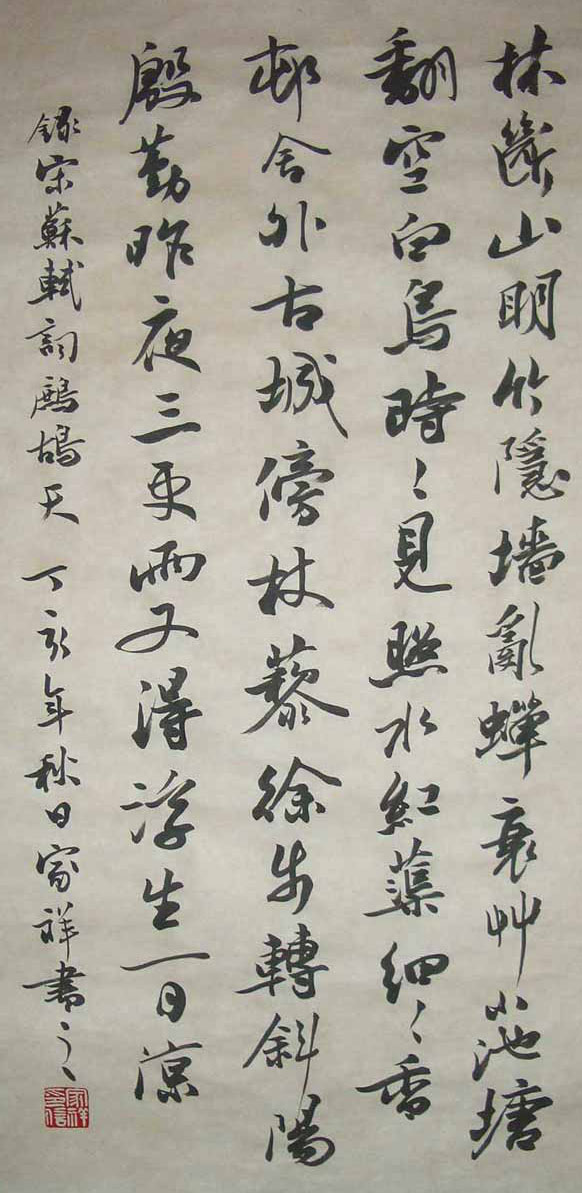 林斷山明竹隱墻亂蟬衰艸小池塘
翻空白鳥時〻見照水紅蕖細〻香
邨舍外古城傍杖藜徐步轉斜陽
殷勤昨夜三更雨又得浮生一日涼
錄宋蘇軾詞鷓鴣天 丁亥年秋日家祥書之〻